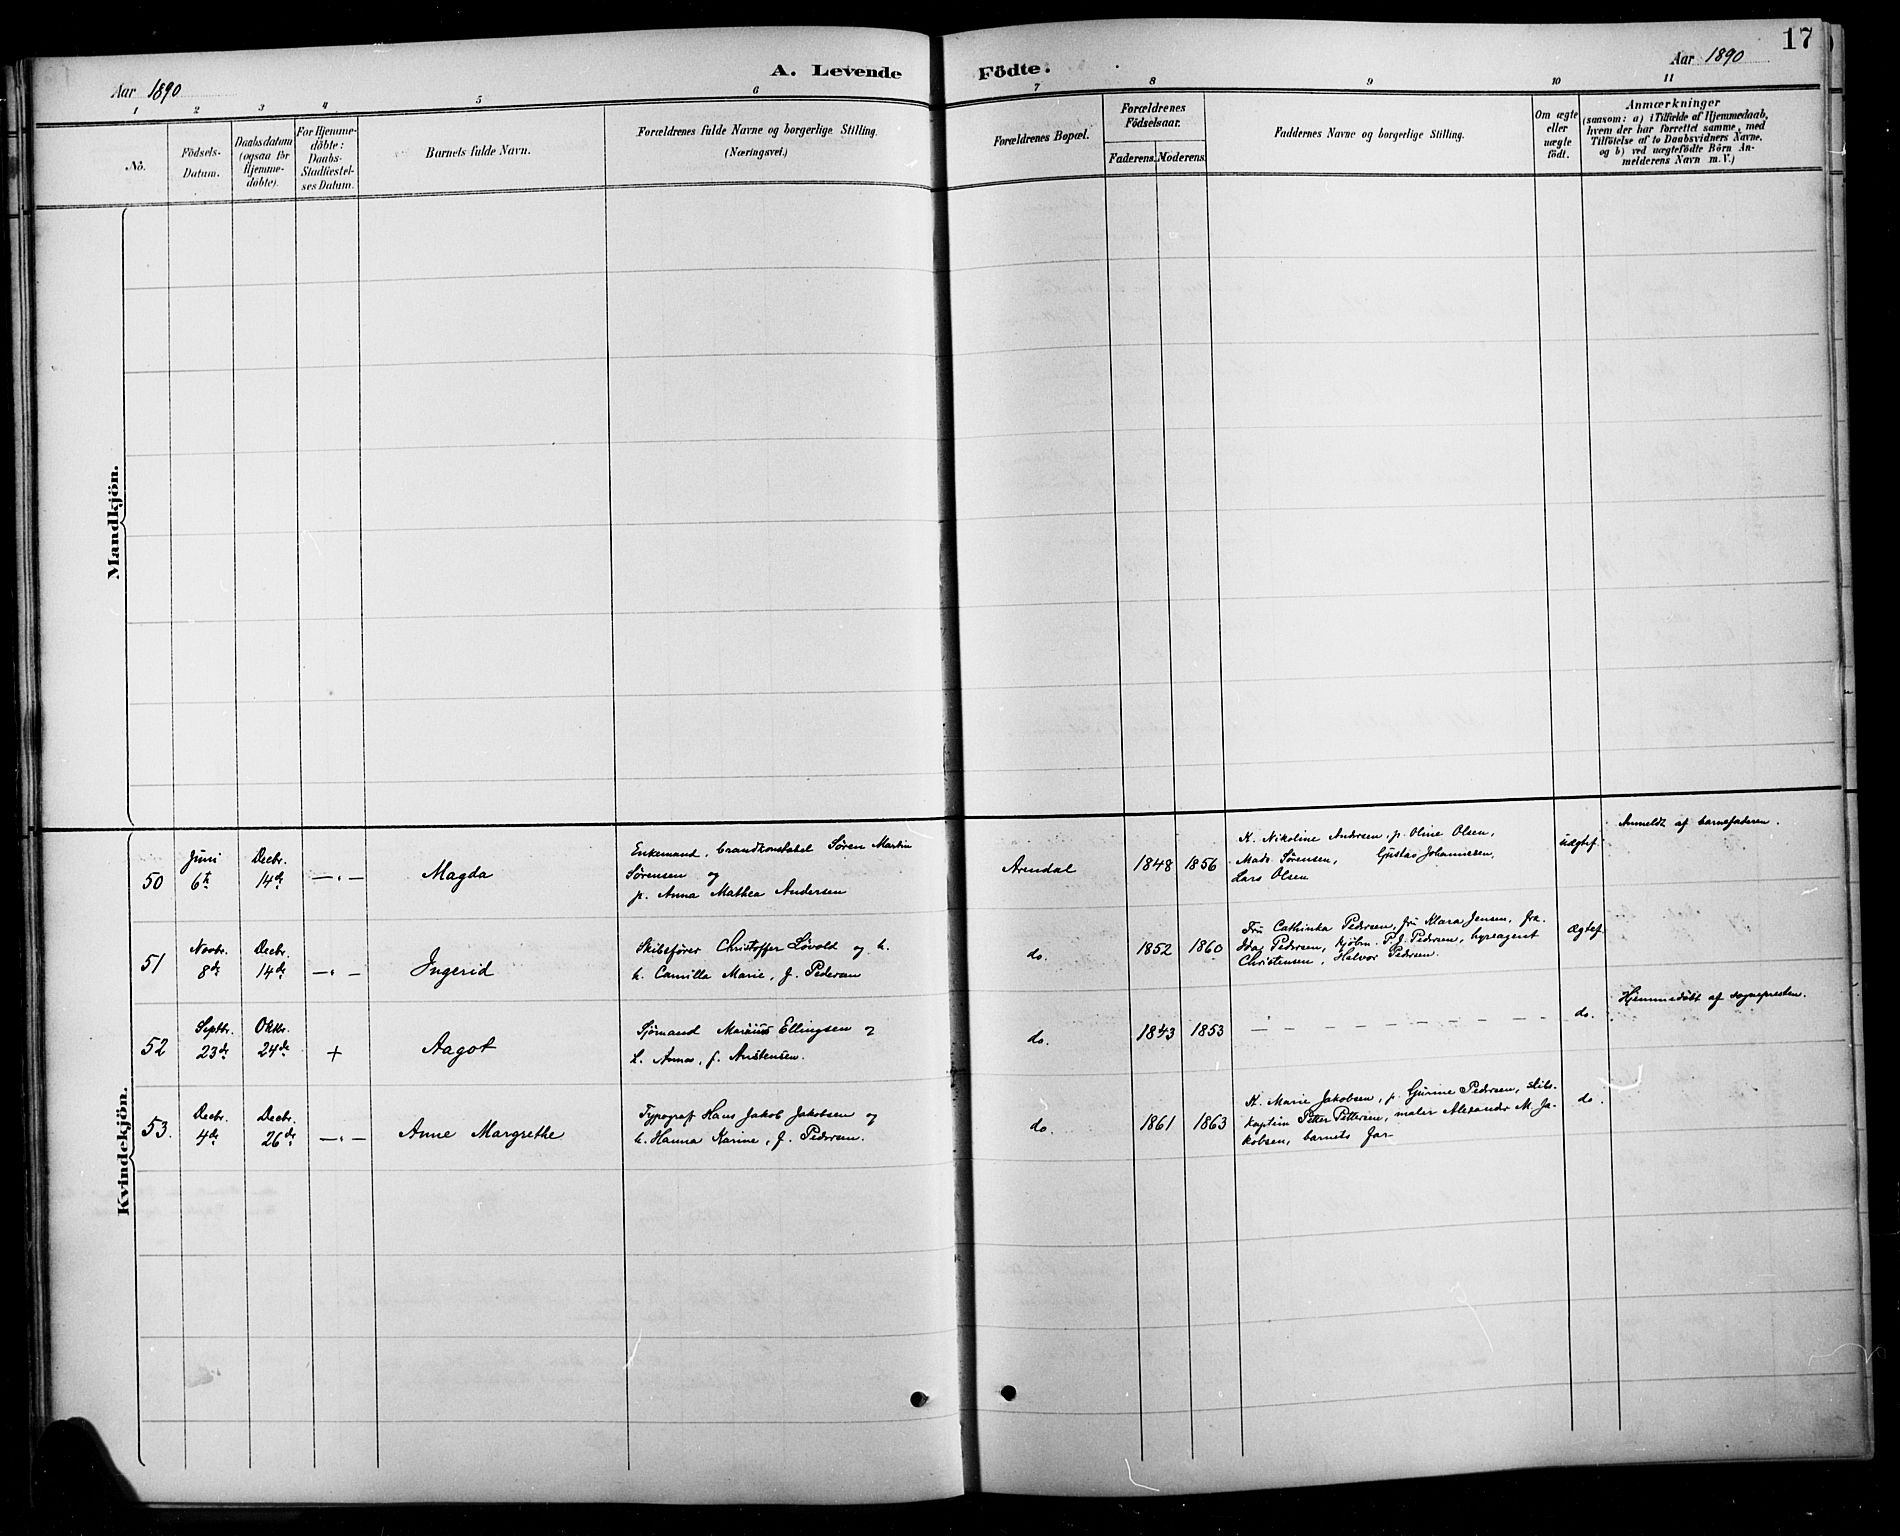 17
Aar 1890
A. Levende Födte.
Aar 1890
1 2 3 4 5 6 7 8 9 10 11
No.
Födsels-
Datum.
Daabsdatum
(ogsaa for
Hjemme-
döbte).
For Hjemme-
döbte:
Daabs-
Stadfæstel-
ses Datum.
Barnets fulde Navn.
Forældrenes fulde Navne og borgerlige Stilling.
(Næringsvei.)
Forældrenes Bopæl.
Forældrenes
Födselsaar.
Faderens. Moderens.
Faddernes Navne og borgerlige Stilling.
Om ægte
eller
uægte
födt.
Anmærkninger
(saasom: a) i Tilfælde af Hjemmedaab,
hvem der har forrettet samme, med
Tilföielse af to Daabsvidners Navne.
og b) ved uægtefödte Börn An-
melderens Navn m. V.)
Mandkjön.
Kvindekjön.
50
Juni
6te
Decbr.
14de
— " —
Magda
Enkemand, brandkonstabel Søren Martin
Sørensen og
p. Anna Mathea Andersen
Arendal
1848 1856
K. Nikoline Andersen, p. Oline Olsen,
Mads Sørensen, Gustav Johannesen,
Lars Olsen
uægtef.
Anmeldt af barnefaderen.
51
Novbr.
8de
Decbr.
14de
— " —
Ingerid
Skibsfører Christoffer Løvold og h.
h. Camilla Marie, f. Pedersen
do.
1852 1860
Fru Cathinka Pedersen, fru Klara Jensen, frk.
Ida Pedersen, kjøbm. P. J. Pedersen, hyreagent
Christensen, Halvor Pedersen.
Ægtef.
52
Septbr.
23de
Oktbr.
24de
+
Aagot
Sjømand Marius Ellingsen og
h. Anna, f. Austensen.
do.
1843 1853
— — — — — — — — —
do.
Hjemmedøbt af sognepresten.
53.
Decbr.
4de
Decbr.
26de
— " —
Anne Margrethe
Typograf Hans Jakob Jakobsen og
h. Hanna Karine, f. Pedersen.
do.
1861 1863
K. Marie Jakobsen, p. Gurine Pedersen, skibs-
kaptein Peter Pettersen, maler Alexander M. Ja-
kobsen, barnets far
do.